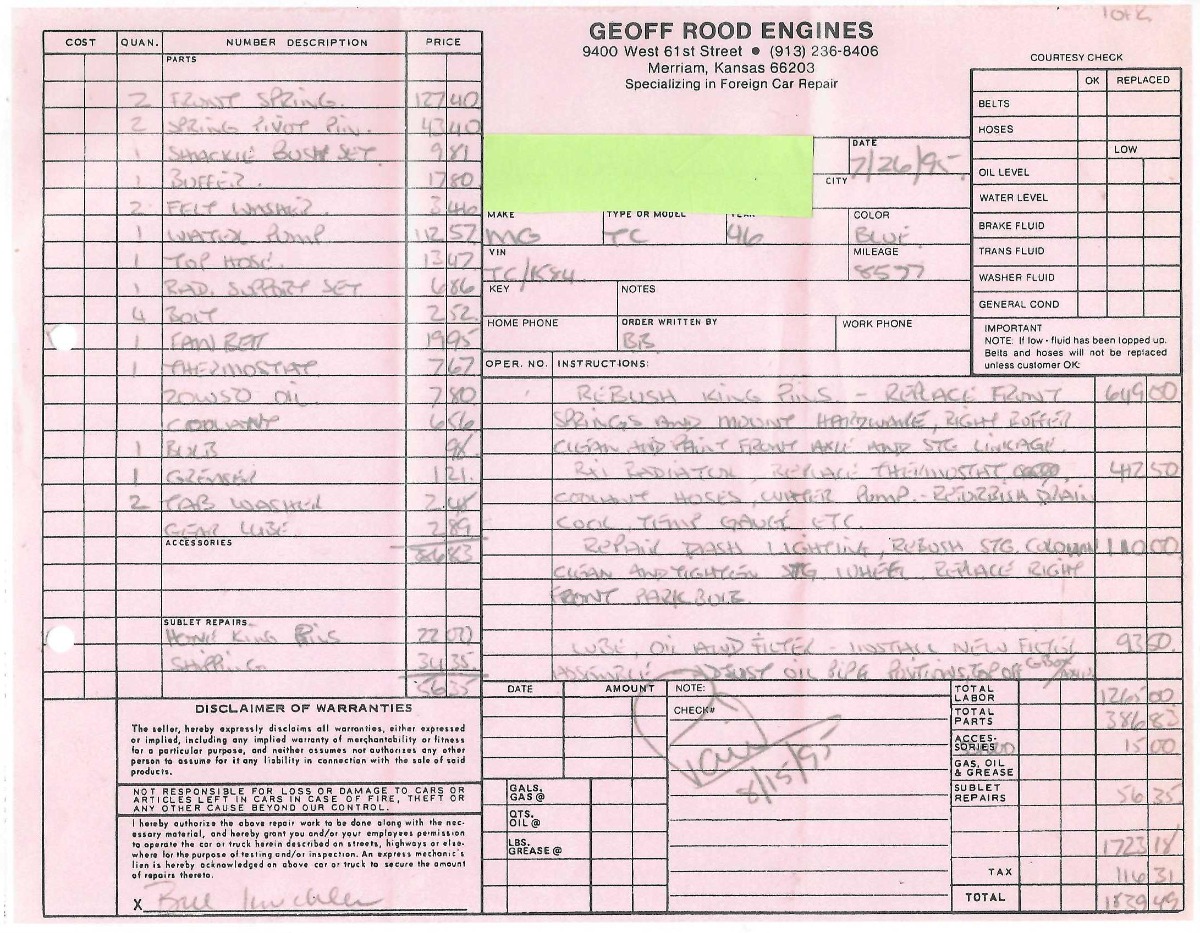 10F12
GEOFF ROOD ENGINES
9400 West 61st Street • (913) 236-8406
Merriam, Kansas 66203
Specializing in Foreign Car Repair
COST QUAN. NUMBER DESCRIPTION PRICE
PARTS
2 FRONT SPRING. 127 40
2 SPRING PIVOT PIN. 43 40
1 SHACKLE BUSH SET. 9 81
1 BUFFER. 17 80
2 FELT WASHER. 3 46
1 WATER PUMP 112 57
1 TOP HOSE. 13 47
1 RAD. SUPPORT SET 6 86
4 BOLT 2 52
1 FAN BELT 19 95
1 THERMOSTAT 7 67
20W50 OIL 7 80
COOLANT 6 56
1 BULB 98
1 1 21
2 TAB WASHER 2 48
GEAR LUBE 2 89
ACCESSORIES
386 83
SUBLET REPAIRS
HONE KING PINS 22 00
SHIPPING 34 35
56 35
DISCLAIMER OF WARRANTIES
The seller, hereby expressly disclaims all warranties, either expressed
or implied, including any implied warranty of merchantability or fitness
for a particular purpose, and neither assumes not authorizes any other
person to assume for it any liability in connection with the sale of said
products.
NOT RESPONSIBLE FOR LOSS OR DAMAGE TO CARS OR
ARTICLES LEFT IN CARS IN CASE OF FIRE, THEFT OR
ANY OTHER CAUSE BEYOND OUR CONTROL.
I hereby authorize the above repair work to be done along with the nec-
essary material, and hereby grant you and/or your employees permission
to operate the car or truck herein described on streets, highways or else-
where for the purpose of testing and/or inspection. An express mechanic's
lien is hereby acknowledged on above car or truck to secure the amount
of repairs thereto.
X
DATE
7/26/95
CITY
MAKE TYPE OR MODEL YEAR COLOR
MG TC 46 BLUE
VIN MILEAGE
TC/1584 8577
KEY NOTES
HOME PHONE ORDER WRITTEN BY WORK PHONE
BB
OPER. NO. INSTRUCTIONS:
REBUSH KING PINS. - REPLACE FRONT 649 00
SPRINGS AND MOUNT HARDWARE, RIGHT BUFFER
CLEAN AND PAINT FRONT AXLE AND STG LINKAGE.
R&I RADIATOR, REPLACE THERMOSTAT 412 50
COOLANT HOSES, WATER PUMP - REFURBISH DRAIN
COCK, TEMP GAUGE ETC.
REPAIR DASH LIGHTING, REBUSH STG COLUMN 110 00
CLEAN AND TIGHTEN STG WHEEL. REPLACE RIGHT
FRONT PARK BULB.
LUBE, OIL AND FILTER - INSTALL NEW FILTER 93 50
ASSEMBLY ADJUST OIL PIPE POSITIONS, TOP OFF G BOX/
DATE AMOUNT
NOTE:
CHECK#
8/15/95
GALS.
GAS @
QTS.
OIL @
LBS.
GREASE @
COURTESY CHECK
OK REPLACED
BELTS
HOSES
LOW
OIL LEVEL
WATER LEVEL
BRAKE FLUID
TRANS FLUID
WASHER FLUID
GENERAL COND
IMPORTANT
NOTE: If low - fluid has been topped up.
Belts and hoses will not be replaced
unless customer OK.
TOTAL
LABOR 1265 00
TOTAL
PARTS 386 83
ACCES-
SORIES 15 00
GAS, OIL
& GREASE
SUBLET
REPAIRS 56 35
1723 18
TAX 116 31
TOTAL 1839 49